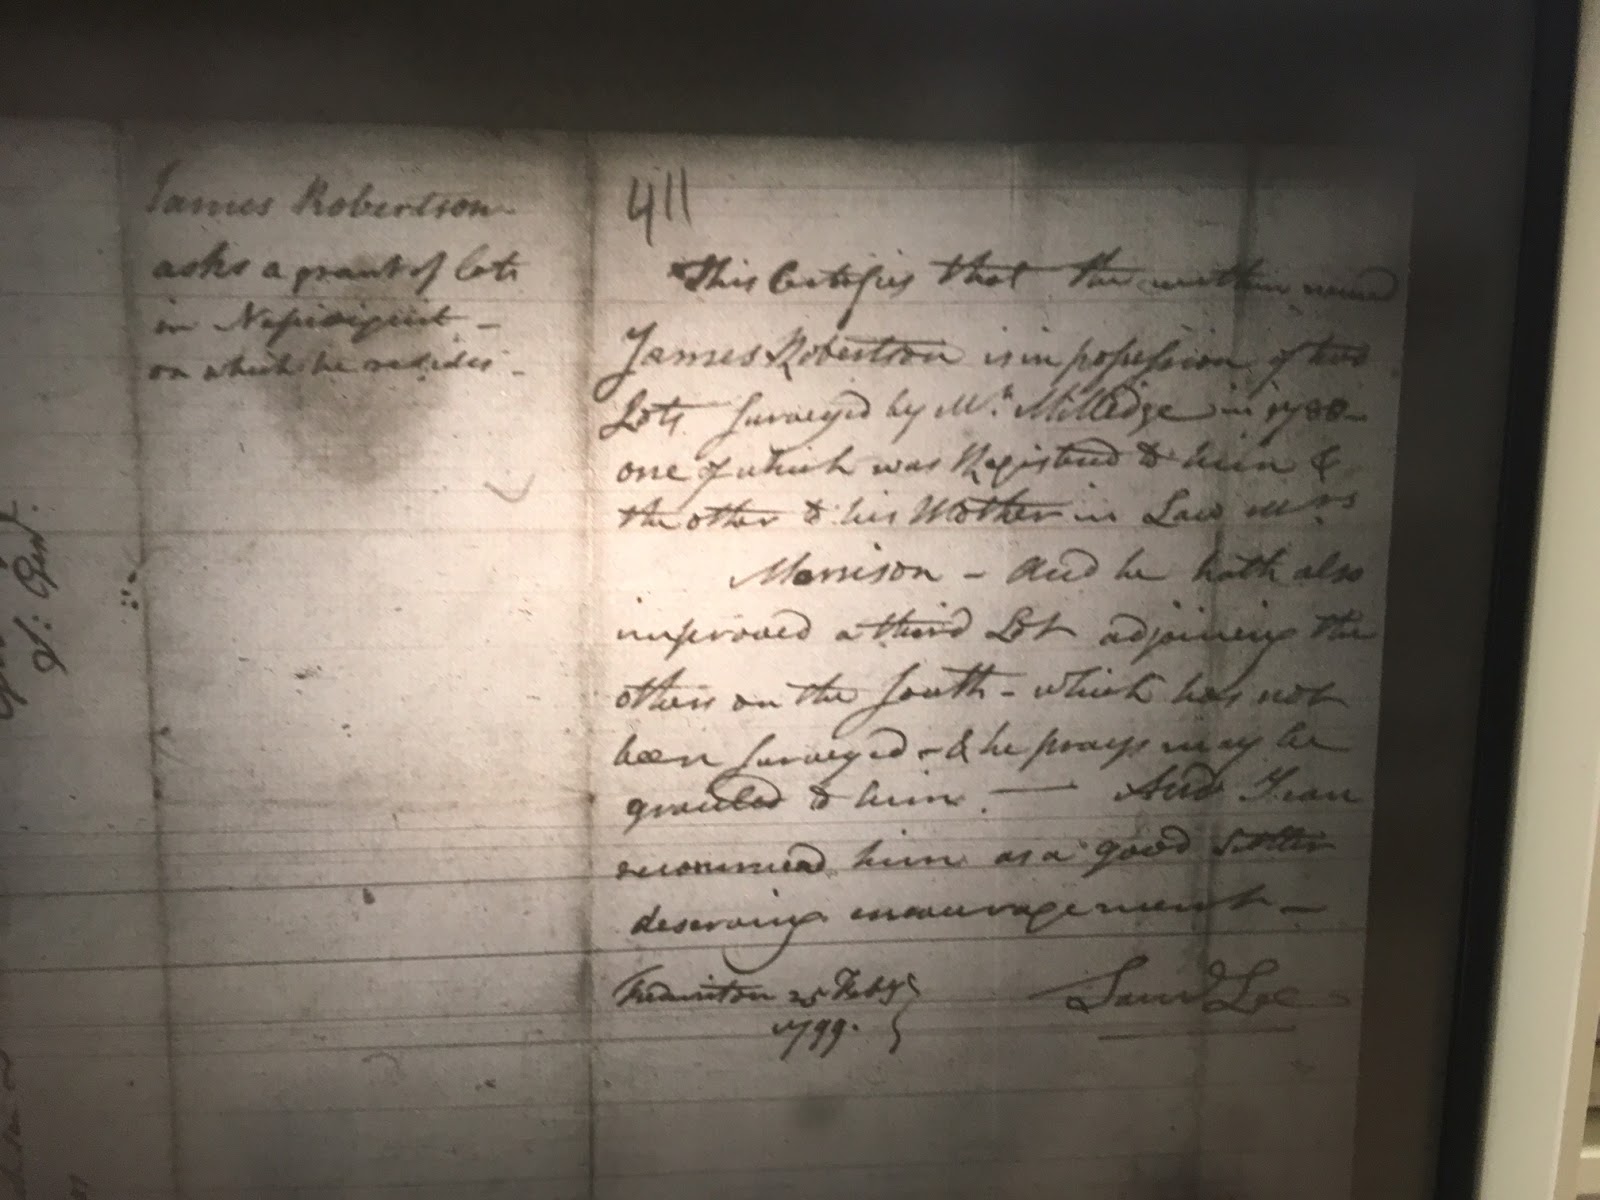 James Robertson
asks a grant of lots
in Nepisiguit -
on which he resides -
411
This Certifies that the within named
James Robertson is in possession of two
Lots Surveyed by Mr. Milledge in 1788 -
one of which was Registred to him &
the other to his Mother in Law Mrs
Morrison - And he hath also
improved a third Lot adjoining the
others on the South - which has not
been Surveyed - & he prays may be
granted to him. — And I can
recommend him as a good Settler
deserving encouragement -
Frederickton 25 Feby
1799.
Saml Lee